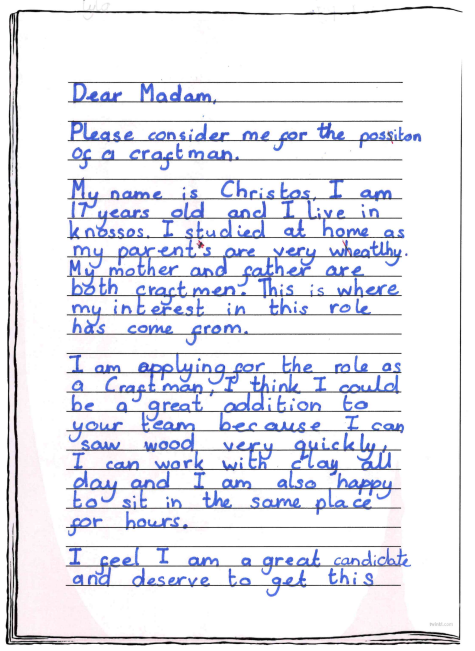 Dear Madam,
Please consider me for the possiton
of a craftman.
My name is Christos, I am
17 years old and I live in
knossos. I studied at home as
my parent's are very wheatlhy.
My mother and father are
both craftmen. This is where
my interest in this role
has come from.
I am applying for the role as
a Craftman, I think I could
be a great addition to
your team because I can
saw wood very quickly,
I can work with clay all
day and I am also happy
to sit in the same place
for hours.
I feel I am a great candidate
and deserve to get this